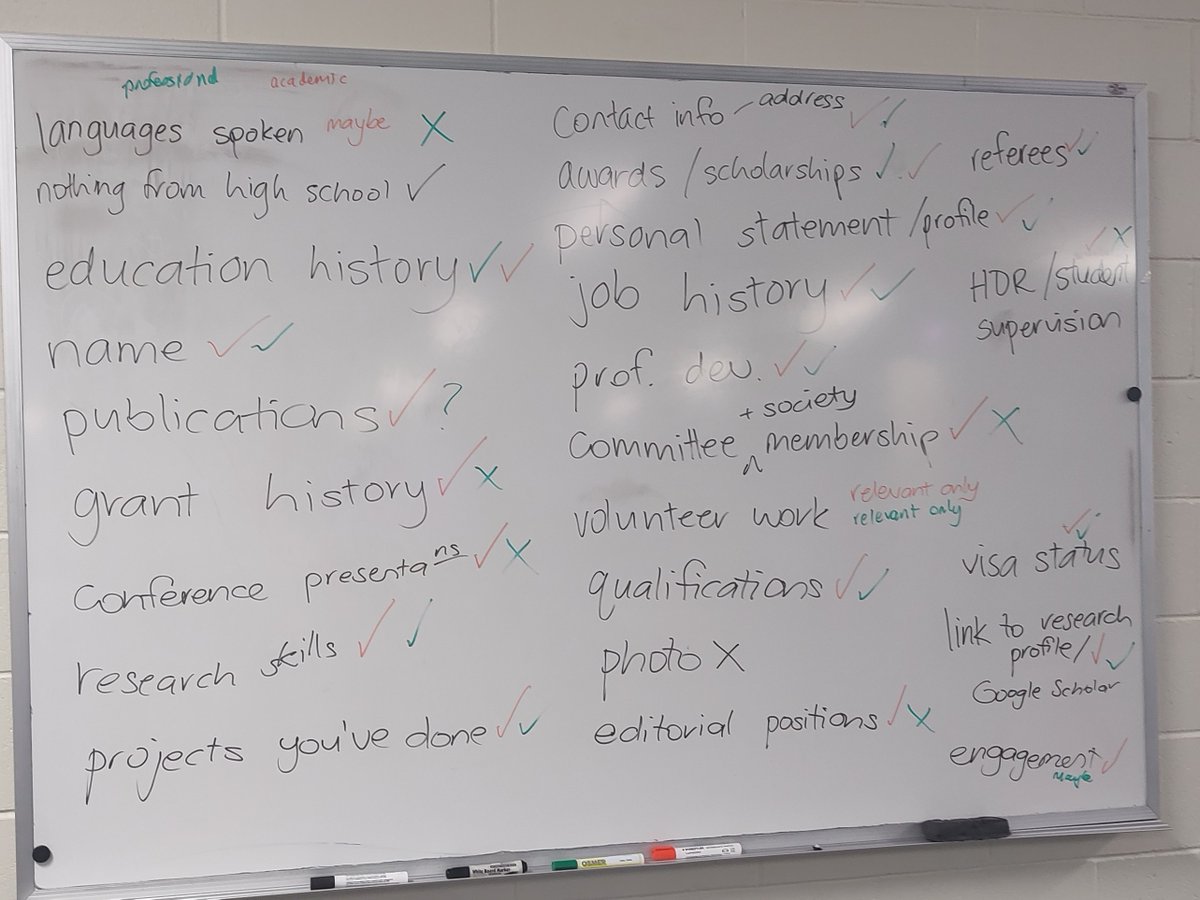 professional academic
languages spoken maybe X
nothing from high school ✓
education history ✓ ✓
name ✓ ✓
publications ✓ ?
grant history ✓ X
Conference presentans ✓ X
research skills ✓ ✓
projects you've done ✓ ✓
Contact info - address ✓ ✓
awards / scholarships ✓ ✓
personal statement / profile ✓ ✓
job history ✓ ✓
prof. dev. ✓ ✓
+ society
Committee ^ membership ✓ X
volunteer work relevant only
relevant only
qualifications ✓ ✓
photo X
editorial positions ✓ X
referees ✓ ✓
✓ X
HDR / student
supervision
✓ ✓
visa status
link to research
profile / ✓ ✓
Google Scholar
engagement ✓
maybe
OSMER
White Board Marker